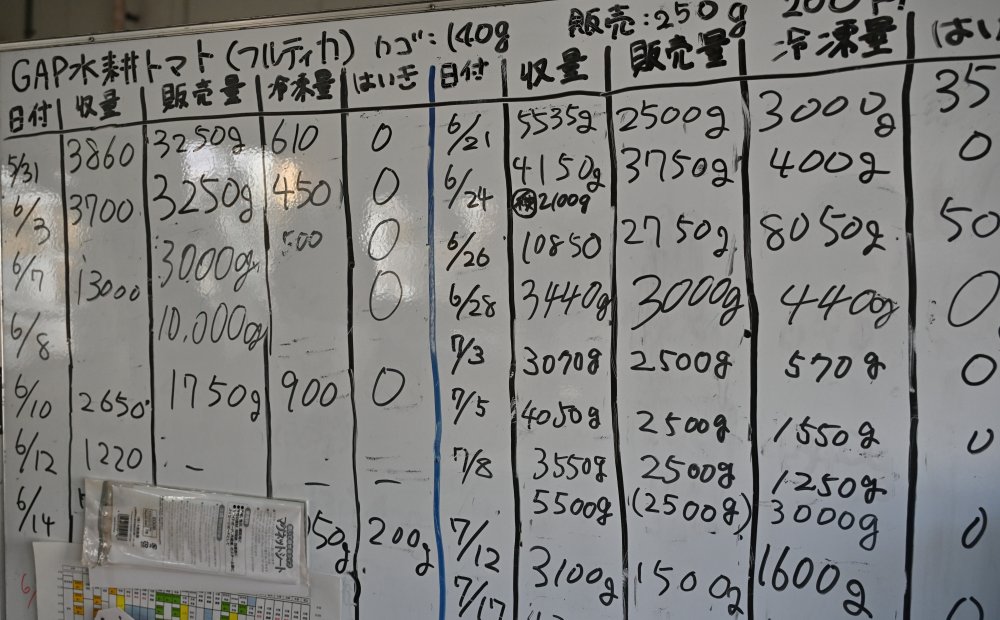 GAP水耕トマト(フルティカ) カゴ:140g 販売:250g
日付 収量 販売量 冷凍量 はいき
5/31 3860 3250g 610 0
6/3 3700 3250g 450 0
6/7 3000g 500 0
6/8 13000 10,000g 0
6/10 2650 1750g 900 0
6/12 1220 - - -
6/14 50g 200g
日付 収量 販売量 冷凍量 はい
6/21 5535g 2500g 3000g 35
6/24 4150g 3750g 400g 0
2100g
6/26 10850 2750g 8050g 50
6/28 3440g 3000g 440g 0
7/3 3070g 2500g 570g 0
7/5 4050g 2500g 1550g 0
7/8 3550g 2500g 1250g
7/12 5500g (2500g) 3000g 0
7/17 3100g 1500g 1600g 0